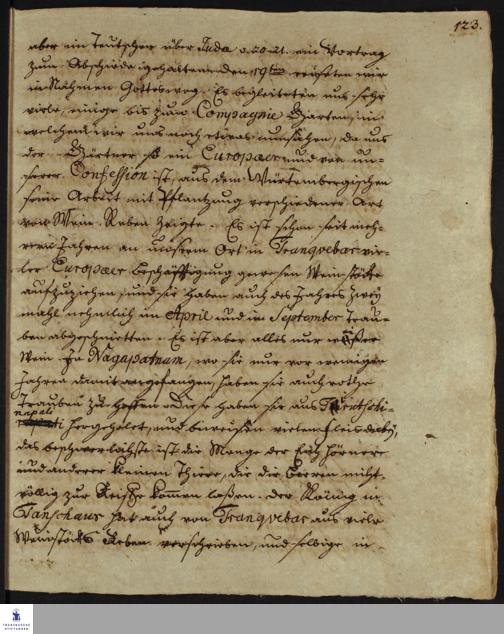 123.
aber ein Teutscher über Juda v. 20. 21. ein Vortrag
zum Abschiede gehalten. den 19ten reiseten wir
in Nahmen Gottes weg. Es begleiteten uns sehr
viele, einige bis zum Compagnie Garten, in
welchem wir uns noch etwas umsahen, da uns
der Gärtner so ein Europaer und von un-
serer Confession ist, aus dem Würtembergischen
seine Arbeit mit Pflantzung verschiedener Art
von Wein Reben zeigte. Es ist schon seit meh-
rern Jahren an unserm Ort in Tranqvebar vie-
ler Europaer Beschäfftigung gewesen Wein Stöcke
aufzuziehen, und sie haben auch des Jahres zwey
mahl nehmlich im April und im September Trau-
ben abgeschnitten. Es ist aber alles nur weißer
Wein. In Nagapatnam, wo sie nur vor wenigen
Jahren damit angefangen, haben sie auch rothe
Trauben zu hoffen. Diese haben sie aus
napali
hergeholet, und beweisen vielen Fleis dabey,
das beschwerlichste ist die Menge der Eich hörner
und anderer kleinen Thiere, die die Beeren nicht
völlig zur Reiffe kommen laßen. der König in
Tanschaur hat auch von Tranqvebar aus viele
Weinstöcke Reben verschrieben, und selbige in
FRANCKESCHE STIFTUNGEN